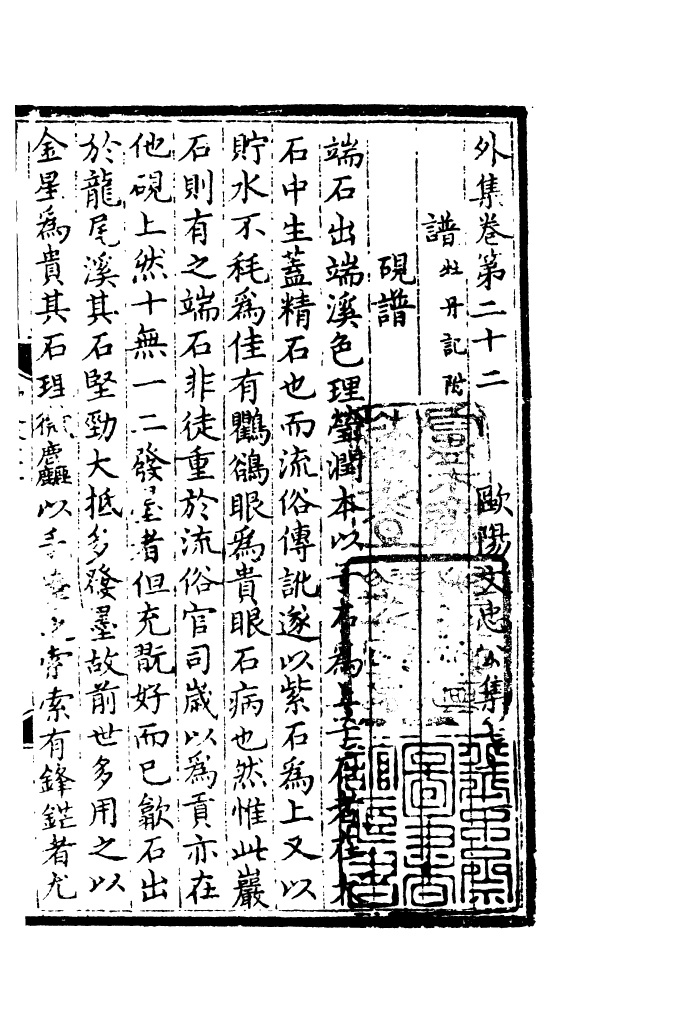 外集卷第二十二 歐陽文忠公集七十二
譜牡丹記附
硯譜
端石出端溪色理瑩潤本以子石為上子石者在大
石中生蓋精石也而流俗傳訛遂以紫石為上又以
貯水不秏為佳有鸜鵒眼為貴眼石病也然惟此巖
石則有之端石非徒重於流俗官司歲以為貢亦在
他硯上然十無一二發墨者但充翫好而已歙石出
於龍尾溪其石堅勁大抵多發墨故前世多用之以
金星為貴其石理微麤以手摩之索索有鋒鋩者尤